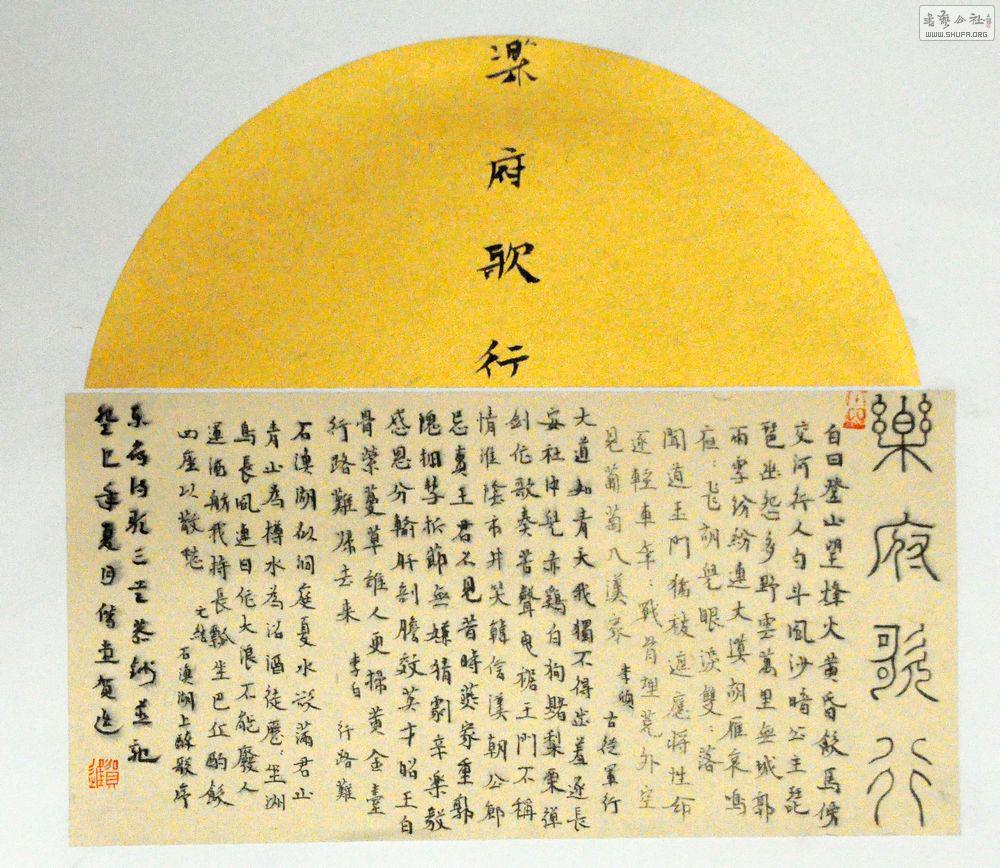 樂府歌行
樂府歌行
白日登山望烽火黃昏飲馬傍
交河行人勺斗風沙暗公主琵
琶幽怨多野雲萬里無城郭
雨雪紛紛連大漠胡雁哀鳴
夜：飛胡兒眼淚雙：落
聞道玉門猶被遮應將性命
逐輕車年：戰骨埋荒外空
見葡萄入漢家 李頎 古從軍行
大道如青天我獨不得出羞逐長
安社中兒赤鷄白狗賭梨栗彈
劍作歌奏苦聲曳裾王門不稱
情淮陰市井笑韓信漢朝公卿
忌賈王君不見昔時燕家重郭
隗擁篲折節無嫌猜劇辛樂毅
感恩分輸肝剖膽效英才昭王白
骨縈蔓草誰人更掃黃金臺
行路難歸去來 李白 行路難
石漁湖似洞庭夏水欲滿君山
青山為樽水為沼酒徒歷：坐洲
島長風連日作大浪不能廢人
運酒舫我持長瓢坐巴丘酌飲
四座以散愁 元結 石漁湖上醉歌序
樂府詩歌三首恭錄並記
癸巳年夏月 賀進
賀進
書藝公社
WWW.SHUFA.ORG